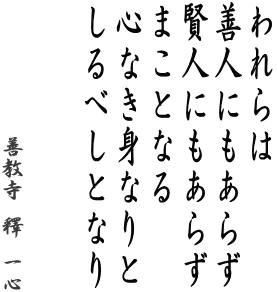 われらは
善人にもあらず
賢人にもあらず
まことなる
心なき身なりと
しるべしとなり
善教寺 釋 一心